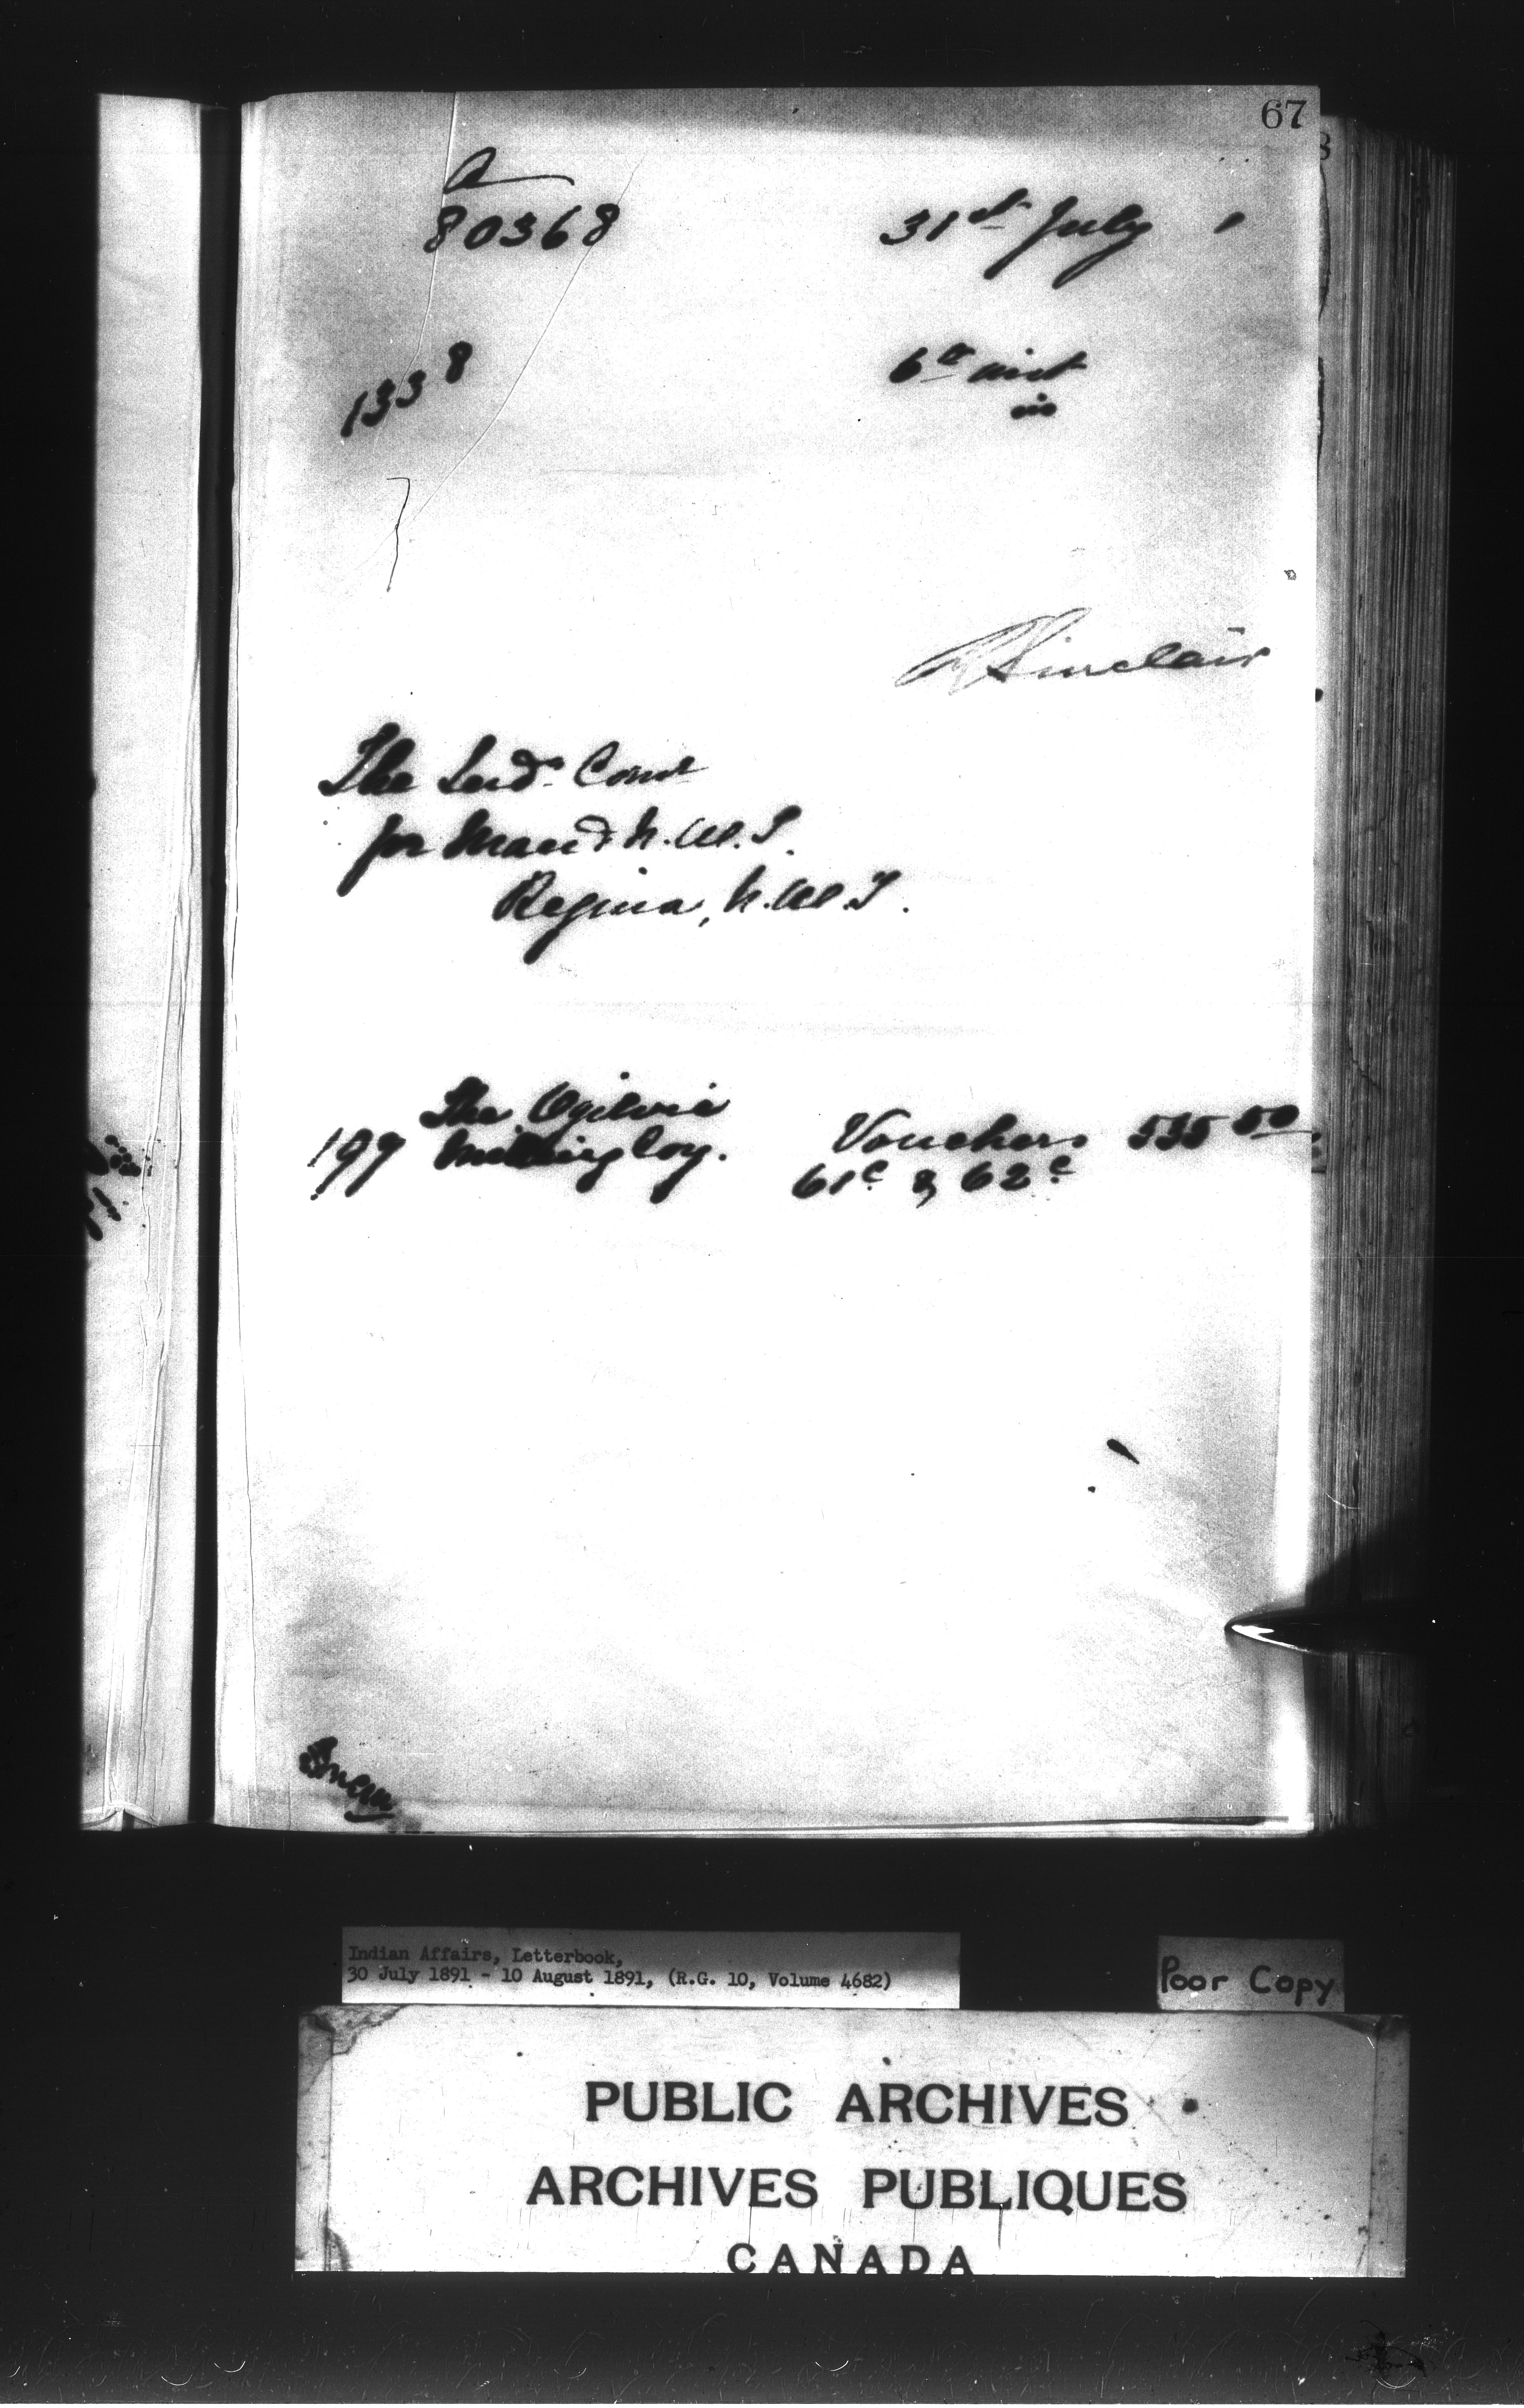 67
a
80368 31st July
1338 6th inst
is
Sinclair
The Indn. Comr
for Man & N.W.T.
Regina, N.W.T.
The Ogilvie
197 Milling Coy. Vouchers 535 50
61c & 62c
Indian Affairs, Letterbook,
30 July 1891 - 10 August 1891, (R.G. 10, Volume 4682)
Poor Copy
PUBLIC ARCHIVES
ARCHIVES PUBLIQUES
CANADA